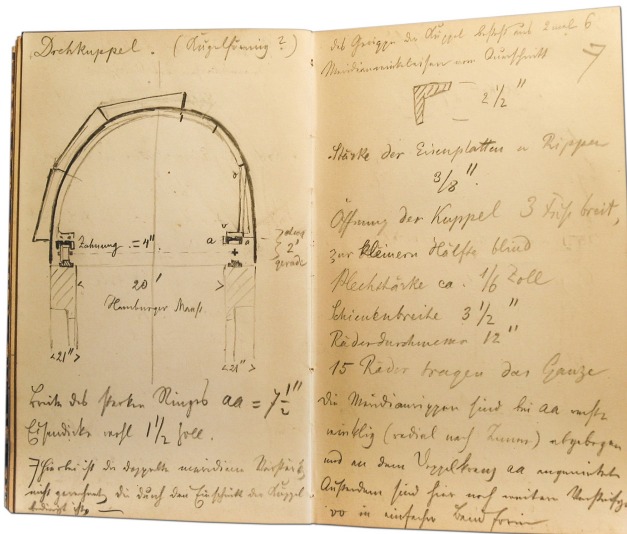 Drehkuppel. (Kugelförmig?)
Zahnung = 4"
a
a
etwa
2'
gerade
20'
Hamburger Maaß.
<21">
<21">
Breite des starken Ringes aa = 7 1/2"
Eisendicke wohl 1 1/2 Zoll.
Hierbei ist die doppelte meridiane
nicht gerechnet, die durch den Einschnitt der Kuppel
bedingt ist.
das Gerippe der Kuppel besteht aus 2 mal 6
Meridianwinkeleisen vom Querschnitt
7
2 1/2"
Stärke der Eisenplatten u Rippen
3/8".
Öffnung der Kuppel 3 Fuß breit,
zur kleinern Hälfte blind
Blechstärke ca. 1/6 Zoll
Schienenbreite 3 1/2"
Räderdurchmesser 12"
15 Räder tragen das Ganze
Die Meridianrippen sind bei aa recht=
winklig (radial nach Innen) abgebogen
und an dem Doppelkranz aa angenietet
Außerdem sind hier noch weitere
vv in einfacher Band form